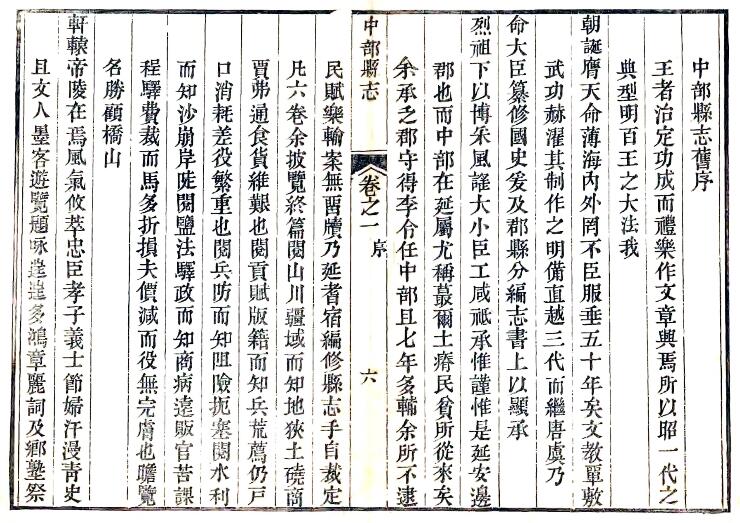 中部縣志舊序
王者治定功成而禮樂作文章興焉所以昭一代之
典型明百王之大法我
朝誕膺天命薄海內外罔不臣服垂五十年矣文教單敷
武功赫濯其制作之明備直越三代而繼唐虞乃
命大臣纂修國史爰及郡縣分編志書上以顯承
烈祖下以博采風謠大小臣工咸祗承惟謹惟是延安邊
郡也而中部在延屬尤稱蕞爾土瘠民貧所從來矣
余承乏郡守得李令任中部且七年多輔余所不逮
中部縣志
卷之一
序
六
民賦樂輸案無畱牘乃延耆宿編修縣志手自裁定
凡六卷余披覽終篇閱山川疆域而知地狹土磽商
賈弗通食貨維艱也閱貢賦版籍而知兵荒薦仍戸
口消耗差役繁重也閱兵防而知阻險扼塞閱水利
而知沙崩岸陡閱鹽法驛政而知商病遠販官苦課
程驛費裁而馬多折損夫價減而役無完膚也瞻覽
名勝顧橋山
軒轅帝陵在焉風氣攸萃忠臣孝子義士節婦汗漫靑史
且文人墨客遊覽題咏遑遑多鴻章麗詞及鄉塾祭